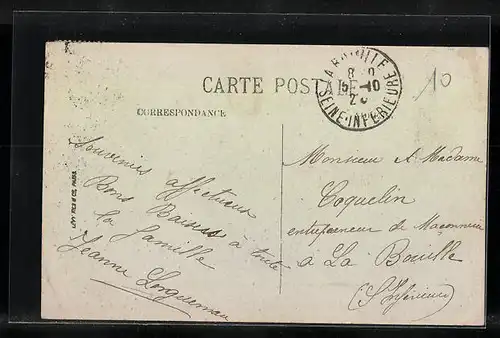 CARTE POSTALE
CORRESPONDANCE
LA BOUILLE
8 0
5-10
2
SEINE-INFÉRIEURE
10
LÉVY FILS & CIE, PARIS
Souvenirs affectueux
Bons Baisers à toute
la famille
Jeanne
Monsieur et Madame
Coquelin
entrepreneur de Maçonnerie
à La Bouille
(S Inférieure)